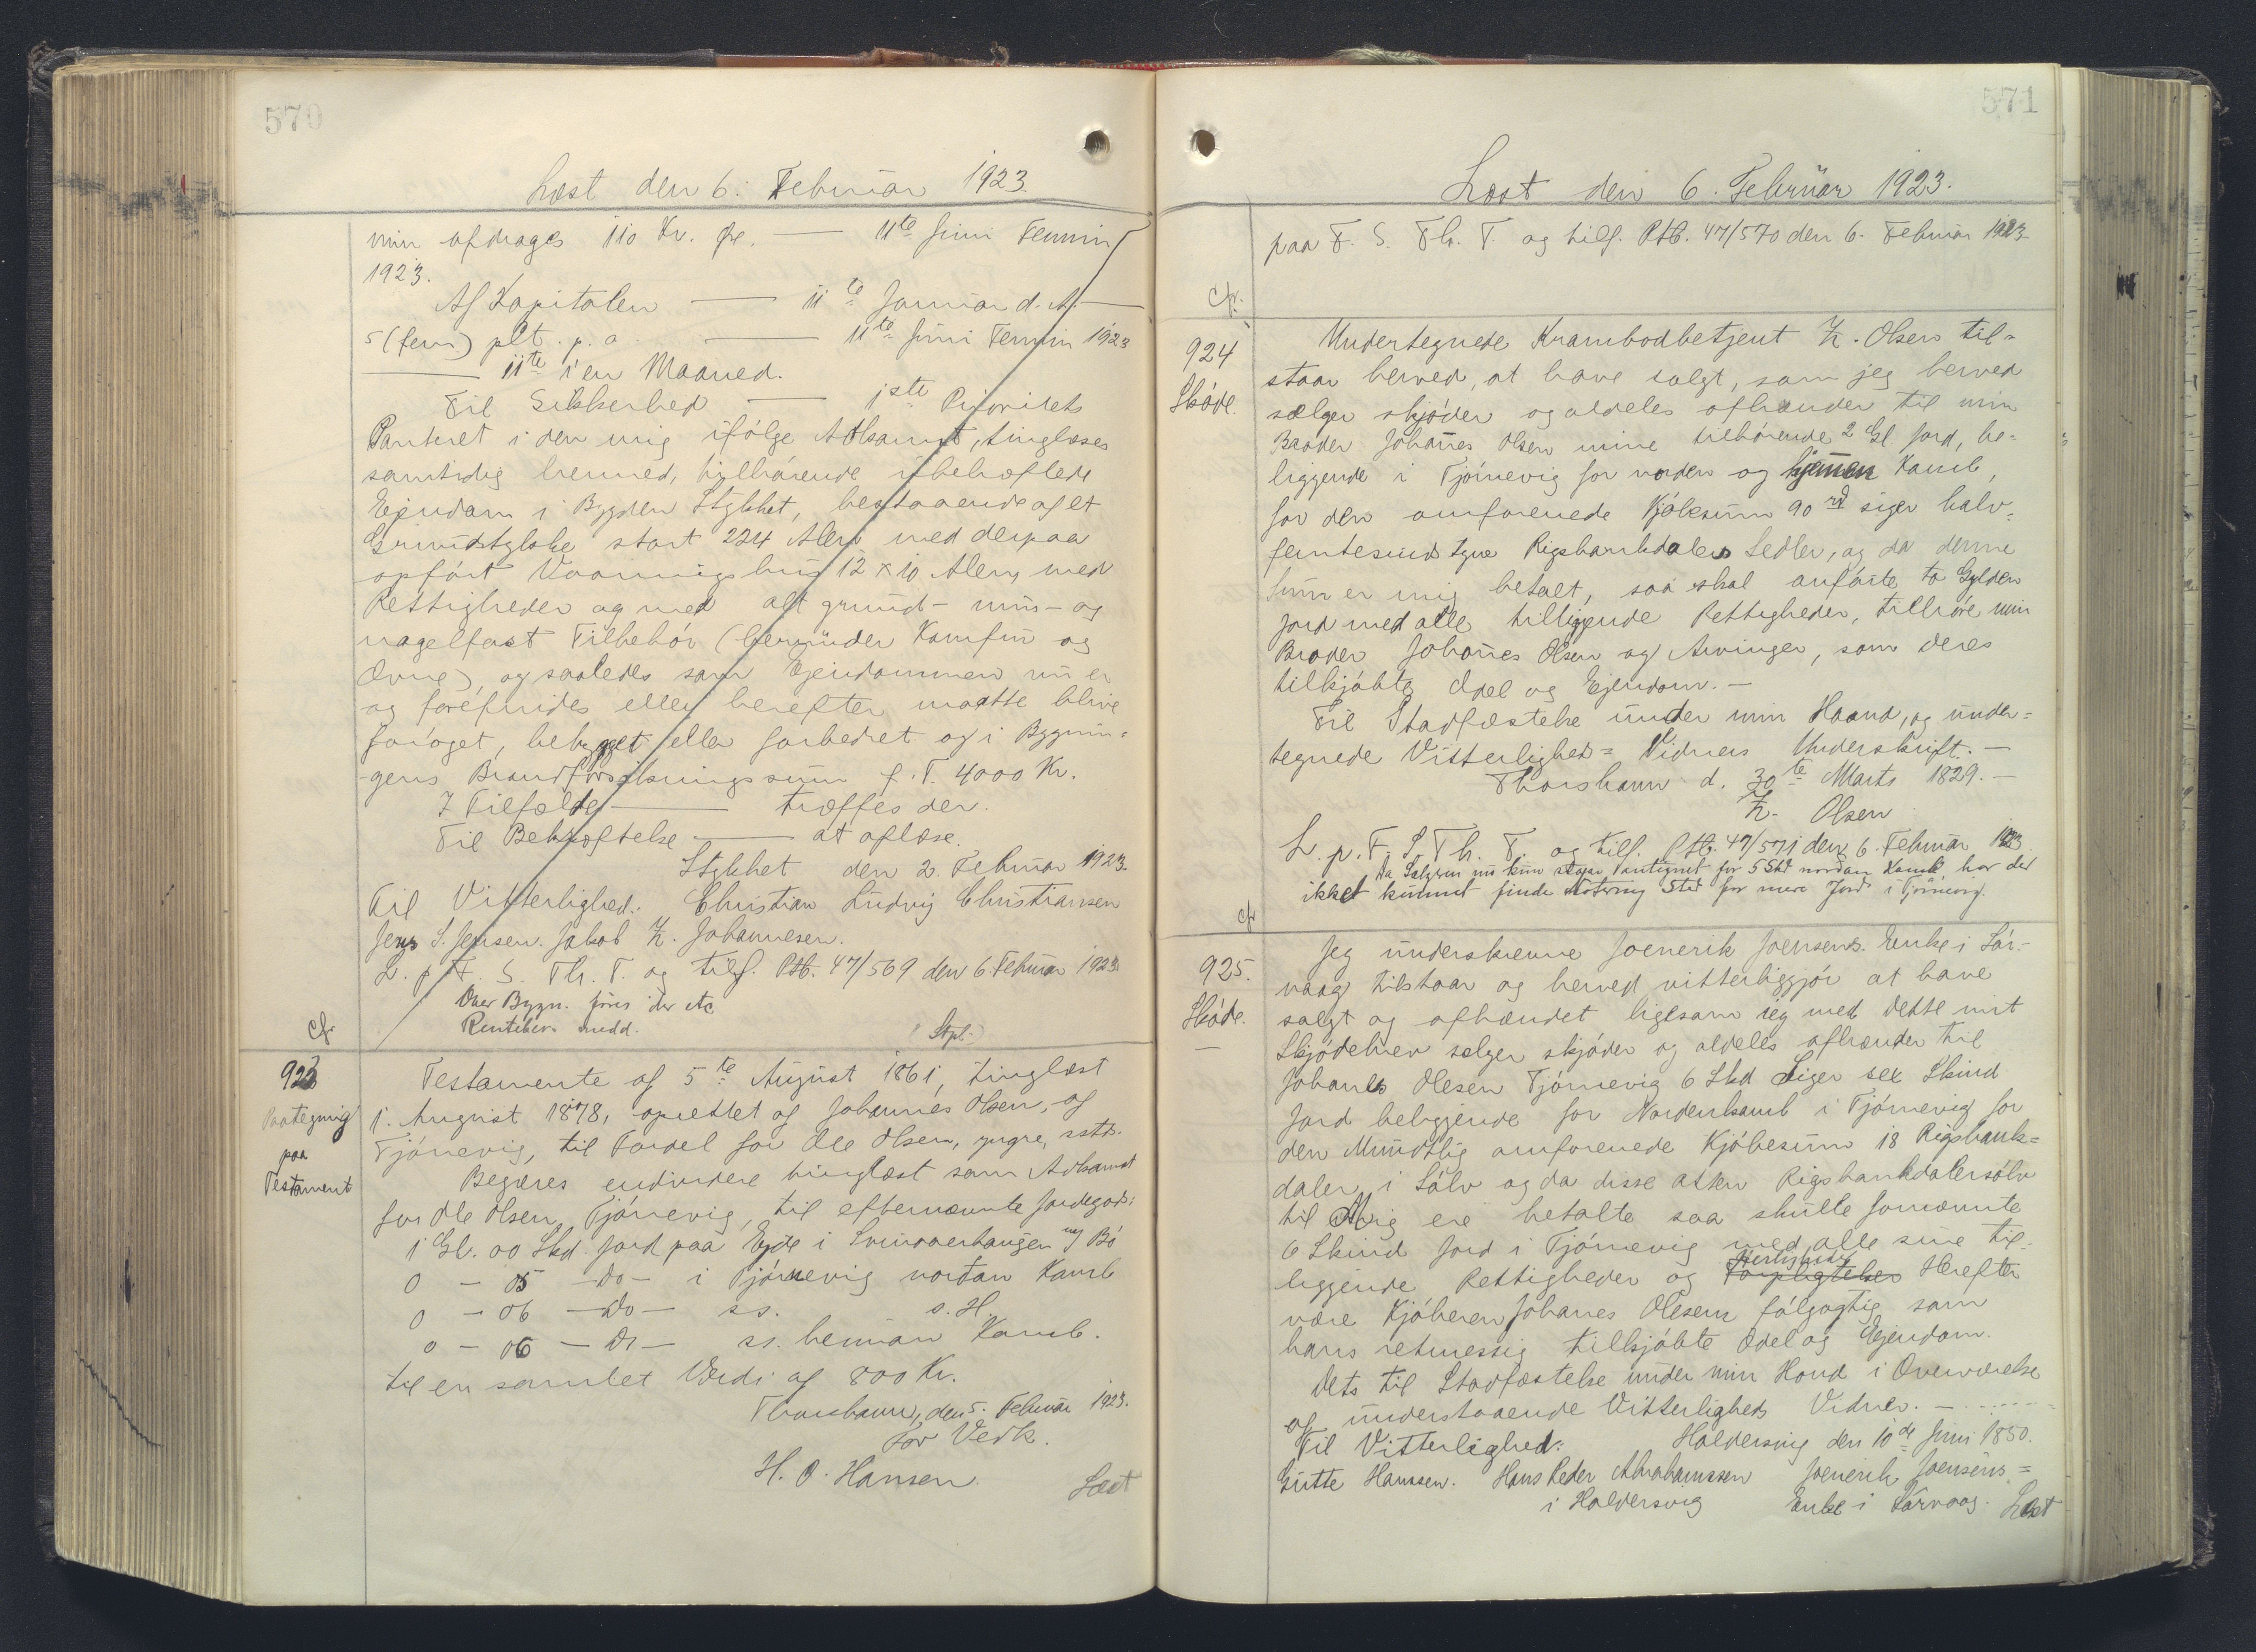 570
Læst den 6. Februar 1923.
min afdrages 110 Kr. Øre. — 11te Juni Termin
1923.
Af Kapitalen — 11te Januar d. A. —
5 (fem) pCt. p. a. — 11te Juni Termin 1923
— 11te i en Maaned.
Til Sikkerhed — 1ste Prioritets
Panteret i den mig ifølge Adkomst, tinglæses
samtidig hermed, tilhørende ubehæftede
Ejendom i Bygden Stykket, bestaaende af et
Grundstykke stort 224 Alen med derpaa
opført Vaaningshus 12 x 10 Alen, med
Rettigheder og med alt grund- mur- og
nagelfast Tilbehør (herunder Komfur og
Ovne), og saaledes som Ejendommen nu er
og forefindes eller herefter maatte blive
forøget, bebygget eller forbedret og i Bygnin-
gens Brandforsikringssum p. T. 4000 Kr.
I Tilfælde — træffes der.
Til Bekræftelse — at aflæse.
Stykket den 2. Februar 1923.
Til Vitterlighed: Christian Ludvig Christiansen
Jens S. Jensen. Jakob K. Johannesen.
L. p. F. S. Th. T. og tilf. Ptb. 47/569 den 6. Februar 1923
Over Bygn. føres der etc
Rentebev. medd.
cfr
Stpl.
923
Paategning
paa
Testament
Testamente af 5te August 1861, tinglæst
1. August 1878, oprettet af Johannes Olsen, af
Tjörnevig, til Fordel for Ole Olsen, yngre, sstds.
Begæres endvidere tinglæst som Adkomst
for Ole Olsen, Tjörnevig, til efternævnte Jordegods:
1 Gl. 00 Skd. Jord paa Ejde i Svinaaerhaugen ny Bö
0 — 05 — Do — i Tjörnevig nordan Kamb
0 — 06 — Do — ss. s. H.
0 — 06 — Do — ss. heiman Kamb.
til en samlet Værdi af 800 Kr.
Thorshavn, den 5. Februar 1923.
for Vedk.
H. O. Hansen.
Læst
571
Læst den 6. Februar 1923.
paa F. S. Th. T. og tilf. Ptb. 47/570 den 6. Februar 1923
cfr.
924
Skøde.
Undertegnede Krambodbetjent Z. Olsen til-
staar herved, at have solgt, som jeg herved
sælger skjøder og aldeles afhænder til min
Broder Johañes Olsen mine tilhørende 2 Gl. Jord, be-
liggende i Tjörnevig for norden og hjemen Kamb,
for den omforenede Kjøbsum 90 rd siger halv-
femtesinds tyve Rigsbankdalers Sedler, og da denne
Sum er mig betalt, saa skal anførte to Gylden
Jord med alle tilliggende Rettigheder, tilhøre min
Broder Johañes Olsen og Arvinger, som deres
tilkjøbte Odel og Ejendom. —
Til Stadfæstelse under min Haand, og under-
tegnede Vitterligheds-Vidners Underskrift. —
Thorshavn d. 30te Marts 1829. —
Z. Olsen
L. p. F. S. Th. T. og tilf. Ptb. 47/571 den 6. Februar 1923.
Da Sælgeren nu kun staar Panteignet for 5 Skd nordan Kamb, har der
ikke kunnet finde Notering Sted for mere Jord i Tjörnevig.
cfr
925.
Skøde.
—
Jeg underskrevne Joenerik Joensens Enke i Sør-
vaag tilstaar og herved vitterliggjør at have
solgt og afhændet ligesom jeg med dette mit
Skjødebrev sælger skjøder og aldeles afhænder til
Johanes Olesen Tjörnevig 6 Skd Siger sex Skind
Jord beliggende for Nordenkamb i Tjörnevig for
den Mundtlig omforenede Kjøbesum 18 Rigsbank-
daler i Sølv og da disse atten Rigsbankdalersølv
til Mig ere betalte saa skulle fornævnte
6 Skind Jord i Tjörnevig med alle sine til-
Herligheder
liggende Rettigheder og Forpligtelser Herefter
være Kjøberen Johanes Olesens følgagtig som
hans retmessig tilkjøbte Odel og Ejendom.
Dets til Stadfæstelse under min Hond i Overværelse
af understaaende Vitterligheds Vidner. —
Til Vitterlighed: Haldersvig den 10de Juni 1850.
Gutte Hanssen. Hans Peder Abrahamssen Joenerik Joensens-
i Haldersvig Enke i Sørvaag. Læst